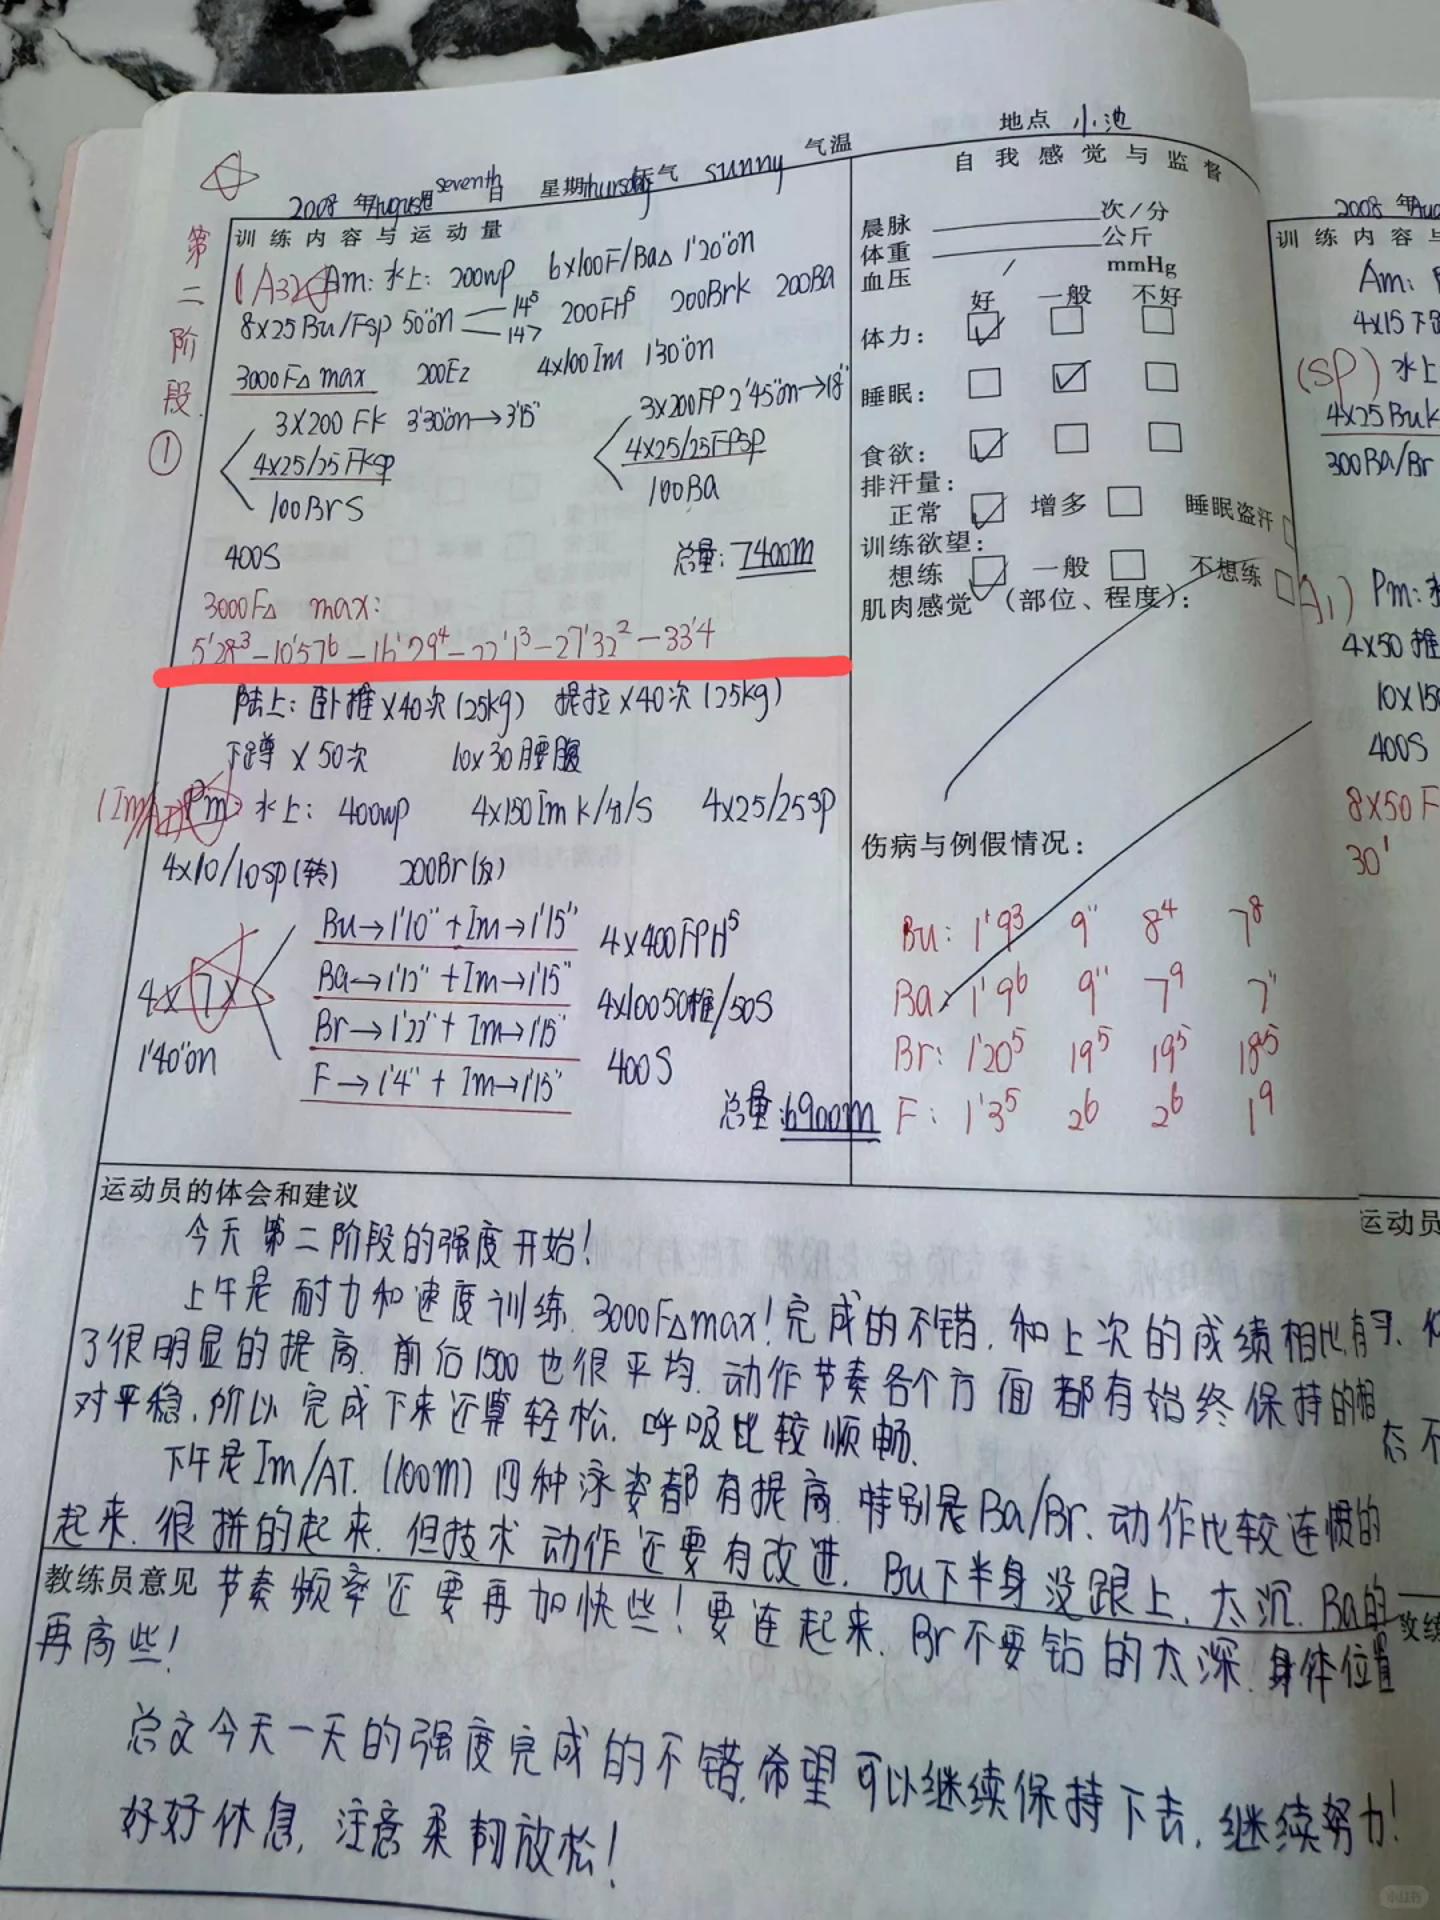 地点 小池
2008 年August月seventh日 星期thursday 天气 sunny 气温
自我感觉与监督
第二阶段.①
训练内容与运动量
(A3) Am: 水上: 200wp 6x100F/Ba△ 1'20"on
8x25Bu/Fsp 50"on 14⁵ 147 200FH⁵ 200Brk 200Ba
3000F△ max 200Ez 4x100Im 1'30"on
3X200 FK 3'30"on→3'15"
4x25/25 FKsp
100BrS
3x200FP 2'45"on→18"
4x25/25FPsp
100Ba
400S 总量: 7400m
3000F△ max:
5'28³-10'57⁶-16'29⁴-22'1³-27'32²-33'4
陆上: 卧推x40次(25kg) 提拉x40次(25kg)
下蹲 x 50次 10x30腰腹
(Im/AT) Pm 水上: 400wp 4x150Im K/分/S 4x25/25sp
4x10/10sp(转) 200Br(分)
4x 7x
1'40"on
Bu→1'10"+Im→1'15"
Ba→1'12"+Im→1'15"
Br→1'22"+Im→1'15"
F→1'4"+Im→1'15"
4x400FPH⁵
4x100 50推/50S
400S
总量:6900m
晨脉 次/分
体重 公斤
血压 / mmHg
好 一般 不好
体力:
睡眠:
食欲:
排汗量:
正常 增多 睡眠盗汗
训练欲望:
想练 一般 不想练
肌肉感觉 (部位、程度):
伤病与例假情况:
Bu: 1'9³ 9" 8⁴ 7⁸
Ba: 1'9⁶ 9" 7⁹ 7"
Br: 1'20⁵ 19⁵ 19⁵ 18⁵
F: 1'3⁵ 2⁶ 2⁶ 1⁹
运动员的体会和建议
今天第二阶段的强度开始!
上午是耐力和速度训练. 3000F△max!完成的不错,和上次的成绩相比有
了很明显的提高.前后1500也很平均.动作节奏各个方面都有始终保持的相
对平稳.所以完成下来还算轻松.呼吸比较顺畅.
下午是Im/AT.(100m)四种泳姿都有提高.特别是Ba/Br.动作比较连惯的
起来.很拼的起来.但技术动作还要有改进.Bu下半身没跟上.太沉.Ba的
教练员意见
节奏频率还要再加快些!要连起来.Br不要钻的太深.身体位置
再高些!
今天一天的强度完成的不错.希望可以继续保持下去,继续努力!
好好休息,注意柔韧放松!
2008 年
训练内容与
Am:
4x15
(SP) 水上
4x25Buk
300Ba/Br
(A1) Pm:
4x50推
10x150
400S
8x50F
30'
运动员
态不
小红书